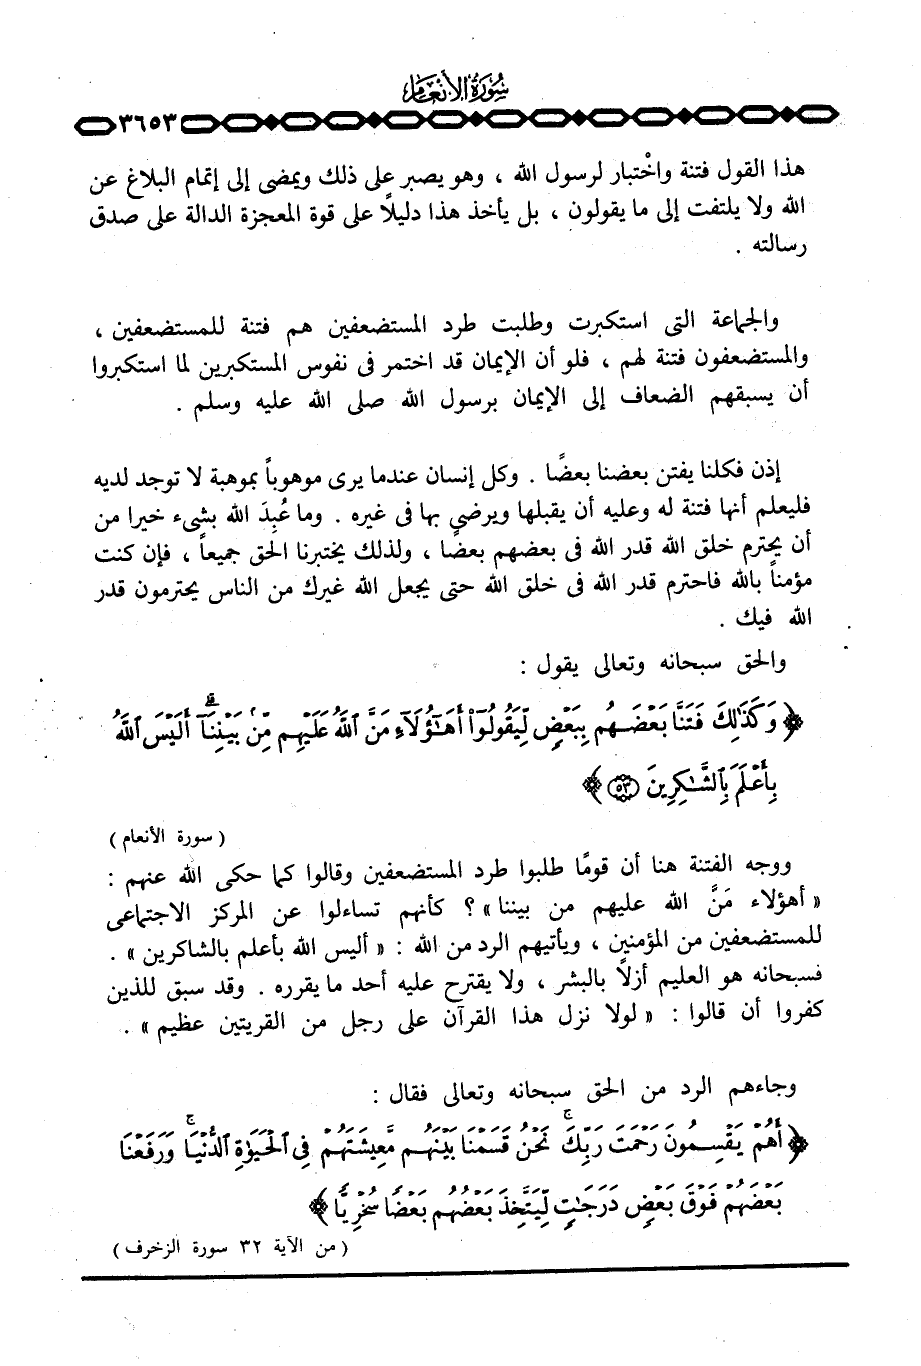 سُورَةُ الأَنْعَام
٣٦٥٣
هذا القول فتنة واخْتبار لرسول الله ، وهو يصبر على ذلك ويمضى إلى إتمام البلاغ عن
الله ولا يلتفت إلى ما يقولون ، بل يأخذ هذا دليلاً على قوة المعجزة الدالة على صدق
رسالته .
والجماعة التى استكبرت وطلبت طرد المستضعفين هم فتنة للمستضعفين ،
والمستضعفون فتنة لهم ، فلو أن الإيمان قد اختمر فى نفوس المستكبرين لما استكبروا
أن يسبقهم الضعاف إلى الإيمان برسول الله صلى الله عليه وسلم .
إذن فكلنا يفتن بعضنا بعضًا . وكل إنسان عندما يرى موهوباً بموهبة لا توجد لديه
فليعلم أنها فتنة له وعليه أن يقبلها ويرضى بها فى غيره . وما عُبِدَ الله بشىء خيرا من
أن يحترم خلق الله قدر الله فى بعضهم بعضا ، ولذلك يختبرنا الحق جميعاً ، فإن كنت
مؤمناً بالله فاحترم قدر الله فى خلق الله حتى يجعل الله غيرك من الناس يحترمون قدر
الله فيك .
والحق سبحانه وتعالى يقول :
﴿ وَكَذَٰلِكَ فَتَنَّا بَعْضَهُم بِبَعْضٍ لِّيَقُولُوٓا۟ أَهَـٰٓؤُلَآءِ مَنَّ ٱللَّهُ عَلَيْهِم مِّنۢ بَيْنِنَآ ۗ أَلَيْسَ ٱللَّهُ
بِأَعْلَمَ بِٱلشَّـٰكِرِينَ ﴿٥٣﴾ ﴾
( سورة الأنعام )
ووجه الفتنة هنا أن قومًا طلبوا طرد المستضعفين وقالوا كما حكى الله عنهم :
« أهؤلاء مَنَّ الله عليهم من بيننا » ؟ كأنهم تساءلوا عن المركز الاجتماعى
للمستضعفين من المؤمنين ، ويأتيهم الرد من الله : « أليس الله بأعلم بالشاكرين » .
فسبحانه هو العليم أزلاً بالبشر ، ولا يقترح عليه أحد ما يقرره . وقد سبق للذين
كفروا أن قالوا : « لولا نزل هذا القرآن على رجل من القريتين عظيم » .
وجاءهم الرد من الحق سبحانه وتعالى فقال :
﴿ أَهُمْ يَقْسِمُونَ رَحْمَتَ رَبِّكَ ۚ نَحْنُ قَسَمْنَا بَيْنَهُم مَّعِيشَتَهُمْ فِى ٱلْحَيَوٰةِ ٱلدُّنْيَا ۚ وَرَفَعْنَا
بَعْضَهُمْ فَوْقَ بَعْضٍ دَرَجَـٰتٍ لِّيَتَّخِذَ بَعْضُهُم بَعْضًا سُخْرِيًّا ﴾
( من الآية ٣٢ سورة الزخرف )